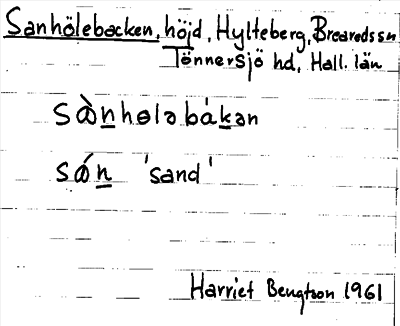 Sanhölebacken, höjd, Hylteberg, Breareds sn
Tönnersjö hd, Hall. län
sàn̲hɵləbák̲ən
sán̲ 'sand'
Harriet Bengtson 1961